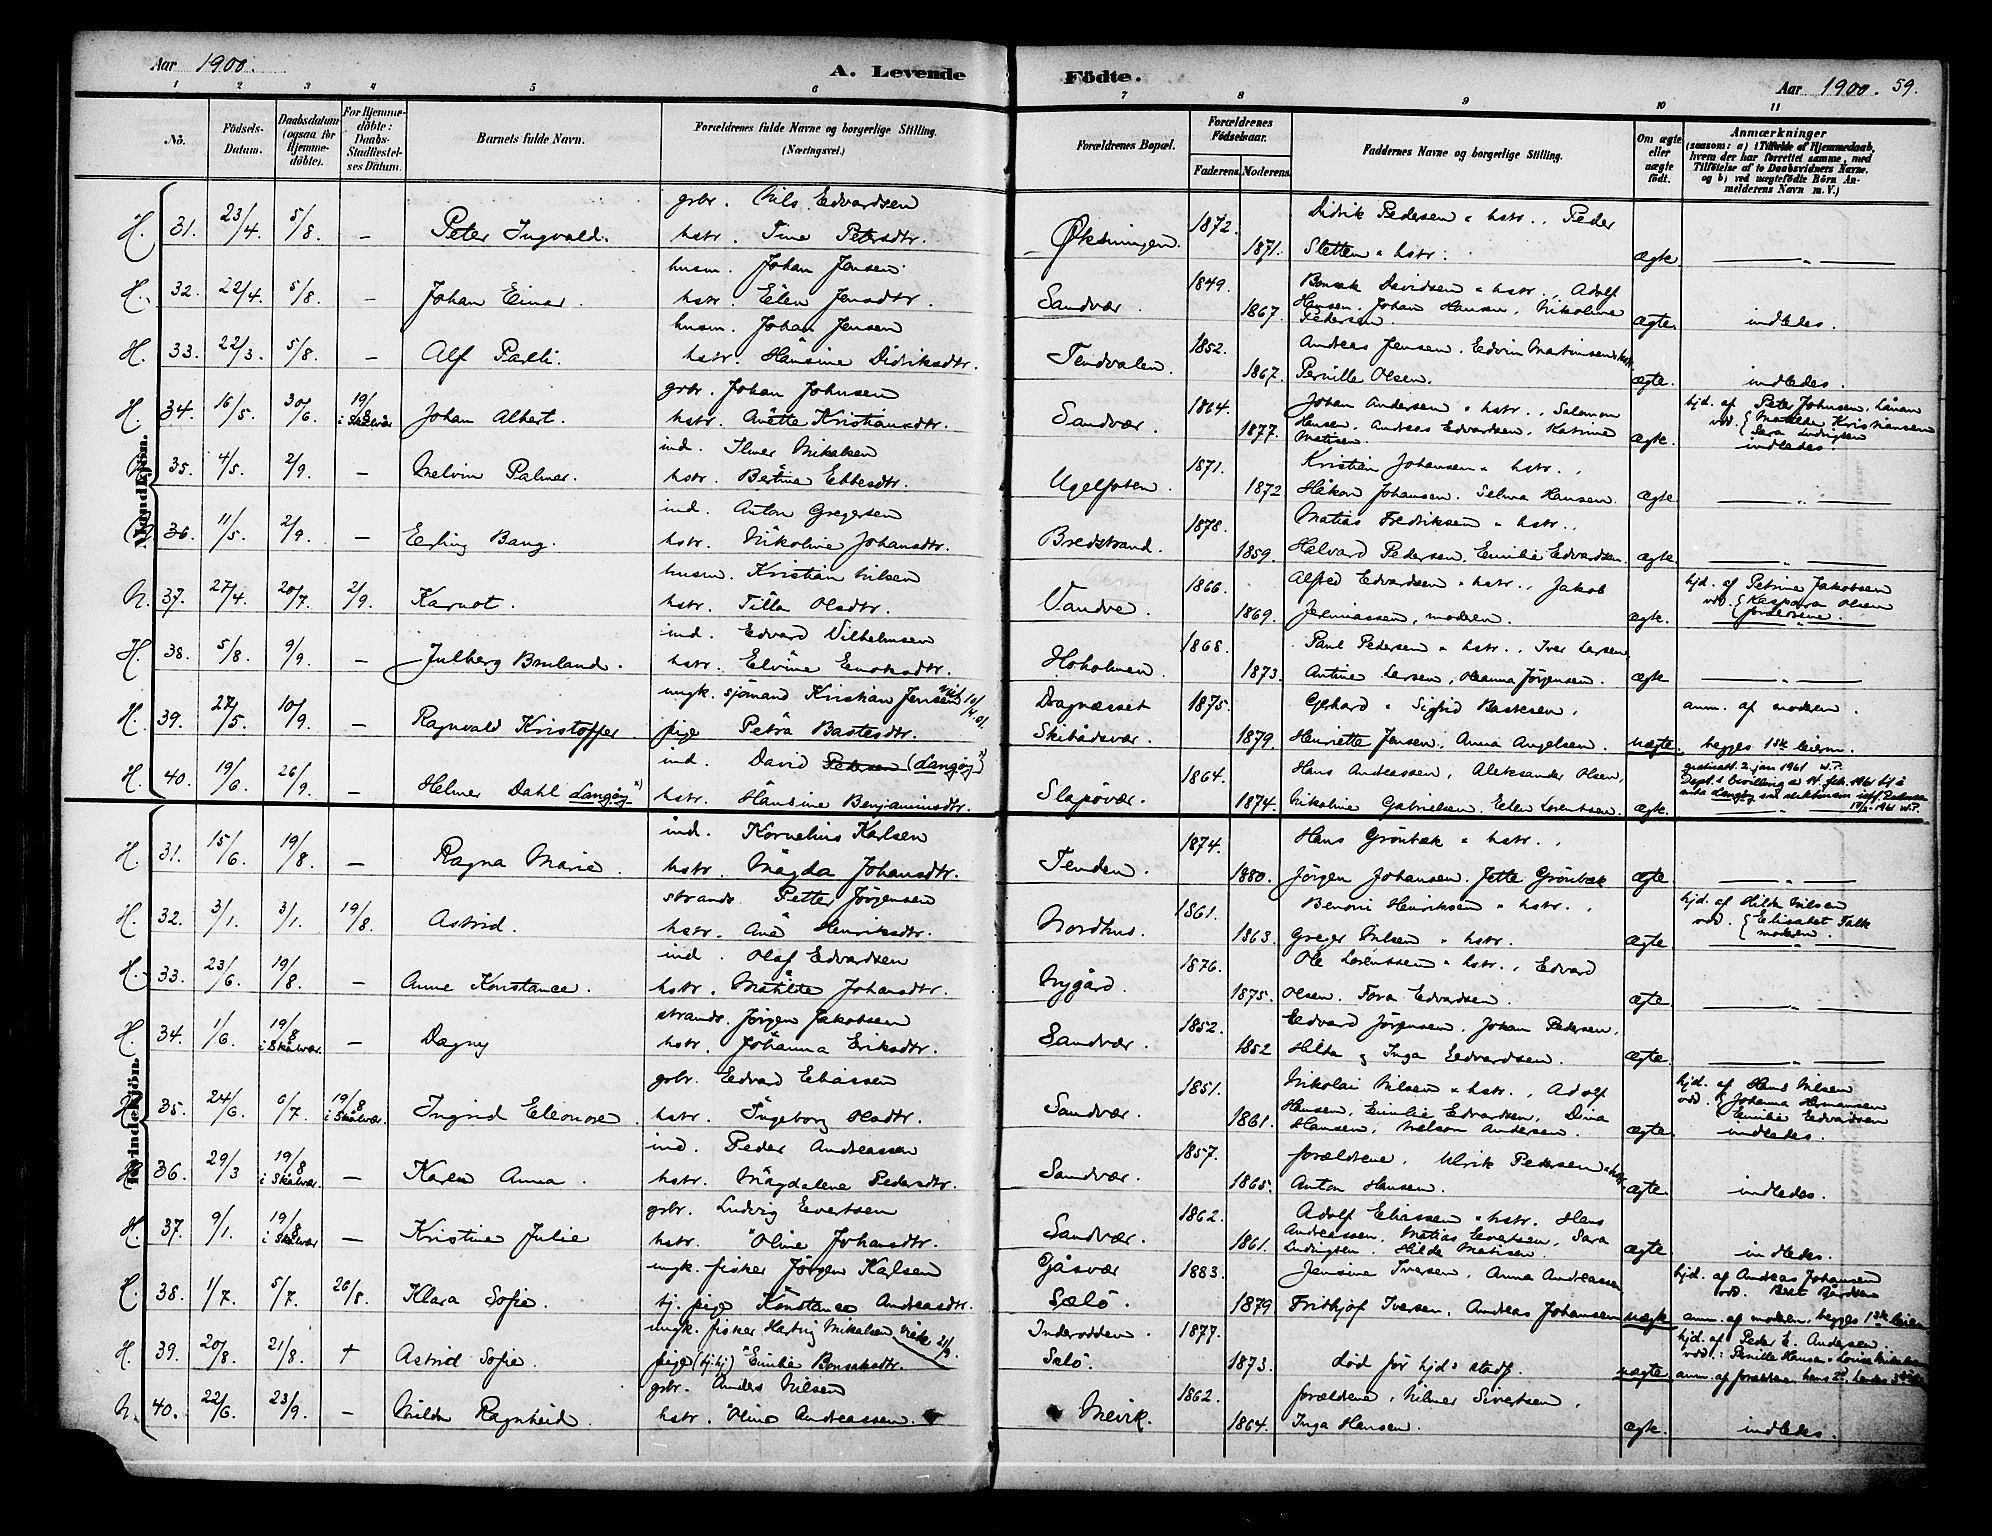 Aar 1900.
A. Levende Födte.
Aar 1900. 59.
1 2 3 4 5 6 7 8 9 10 11
No.
Födsels-Datum.
Daabsdatum (ogsaa for Hjemmedöbte).
For Hjemmedöbte: Daabs-Stadfæstelses Datum.
Barnets fulde Navn.
Forældrenes fulde Navne og borgerlige Stilling. (Næringsvei.)
Forældrenes Bopæl.
Forældrenes Födselsaar.
Faderens. Moderens.
Faddernes Navne og borgerlige Stilling.
Om ægte eller uægte födt.
Anmærkninger
(saasom: a) i Tilfælde af Hjemmedaab,
hvem der har forrettet samme, med
Tilföielse af to Daabsvidners Navne.
og b) ved uægtefödte Börn An-
melderens Navn m. V.)
Mandkjön.
H. 31. 23/4. 5/8. — Peter Ingvald. gbr. Nils Edvardsen
hstr. Tine Petersdtr. Øksningen. 1872. 1871. Didrik Pedersen " hstr., Peder
Sletten " hstr. ægte. — " —
H. 32. 22/4. 5/8. — Johan Einar. husm. Johan Jensen
hstr. Elen Jensdtr. Sandvær. 1849. 1867. Bonsak Davidsen " hstr., Adolf
Hansen, Johan Hansen, Nikoline
Pedersen. ægte. indledes.
H. 33. 22/3. 5/8. — Alf Palli. husm. Johan Jensen
hstr. Hansine Didriksdtr. Tendvalen. 1852. 1867. Andreas Jensen, Edvin Martinsen " hstr.
Pernille Olsen. ægte. indledes.
H. 34. 16/5. 30/6. 19/8 i Skålvær Johan Albert. gbr. Johan Johnsen
hstr. Anette Kristiansdtr. Sandvær. 1864. 1877. Johan Andersen " hstr., Salomon
Hansen, Andreas Edvardsen, Katrine
Matisen. ægte. hjd. af Peter Johnsen, Lånan
vdd. Matilde Kristiansen
Sara Ludvigsen
indledes.
35. 4/5. 2/9. — Melvin Palmar. ind. Ilmer Mikalsen
hstr. Bertine Ebbesdtr. Ugelfoten. 1871. 1872 Kristian Johansen " hstr.,
Håkon Johansen. Selma Hansen. ægte. — " —
36. 11/5. 2/9. — Erling Bang. ind. Anton Gregersen
hstr. Nikoline Johansdtr. Bredstrand. 1878. 1859. Matias Fredriksen " hstr.,
Halvard Pedersen. Emilie Edvardsen. ægte. — " —
N. 37. 27/4. 20/7. 2/9. Karnot. husm. Kristian Nilsen
hstr. Tilla Olsdtr. Vandve. 1866. 1869. Alfred Edvardsen " hstr., Jakob
Jeremiassen, moderen. ægte. hjd. af Petrine Jakobsen
vdd. Kaspara Olsen
forældrene.
H. 38. 5/8. 9/9. — Julberg Bruland. ind. Edvard Vilhelmsen
hstr. Elvine Enoksdtr. Hoholmen. 1868. 1873. Paul Pedersen " hstr., Iver Larsen,
Antine Larsen, Oleanna Jørgensen. ægte — " —
H. 39. 27/5. 10/9. — Ragnvald Kristoffer. ungk. sjømand Kristian Jensen
pige Petra Bastesdtr. Dragnæsset
Skibådsvær. 1875. 1879. Gerhard " Sigfrid Bastesen,
Henriette Jensen. Anna Angelsen. uægte. anm. af moderen.
begges 1ste leierm.
H. 40. 19/6. 26/9. — Helmer Dahl Langøy x) ind. David Petersen (Langøy x)
hstr. Hansine Benjaminsdtr. Slapøvær. 1864. 1874. Hans Andreassen, Aleksander Olsen,
Nikoline Gabrielsen. Ellen Lorentsen. ægte.
Kvindekjön.
H. 31. 15/6. 19/8. — Ragna Marie. ind. Kornelius Karlsen
hstr. Magda Johansdtr. Tenden. 1874. 1880. Hans Grönbæk " hstr.,
Jörgen Johansen. Jette Grönbæk ægte — " —
H. 32. 3/1. 3/1. 19/8. Astrid. strands. Petter Jørgensen
hstr. Ane Henriksdtr. Nordhus. 1861. 1863. Benoni Henriksen " hstr.,
Greger Nilsen " hstr. ægte hjd. af Hilda Nilsen
vdd. Elisabet Falk
moderen
H. 33. 23/6. 19/8. — Anne Konstance. ind. Olaf Edvardsen
hstr. Matilde Johansdtr. Nygård. 1876. 1875. Ole Lorentssen " hstr., Edvard
Olsen. Tora Edvardsen. ægte — " —
H. 34. 1/6. 19/8 i Skålvær. — Dagny strands. Jørgen Jakobsen
hstr. Johanna Eriksdtr. Sandvær. 1852. 1852 Edvard Jörgensen, Johan Pedersen,
Hilda og Inga Edvardsen. ægte. — " —
35. 24/6. 6/7. 19/8 i Skålvær. Ingrid Eleonore. gbr. Edvard Eliassen
hstr. Ingeborg Olsdtr. Sandvær. 1851. 1861. Nikolai Nilsen " hstr., Adolf
Hansen, Emilie Edvardsen, Dina
Hansen, Nelson Andersen. ægte. hjd. af Hans Nilsen
vdd. Johanna Hermansen
Emilie Edvardsen
indledes.
36. 29/3 19/8 i Skålvær — Karen Anna. ind. Peder Andreassen
hstr. Magdalene Pedersdtr. Sandvær. 1857. 1865. forældrene, Ulrik Pedersen " hstr.
Anton Hansen. ægte. indledes.
H. 37. 9/1. 19/8 i Skålvær — Kristine Julie gbr. Ludvig Evertsen
hstr. Oline Johansdtr. Sandvær. 1862. 1861. Adolf Eliassen " hstr. Hans
Andreassen, Matias Evertsen, Sara
Ludvigsen. Hilda Matisen. ægte indledes.
H. 38. 1/7. 5/7. 26/8. Klara Sofie. ungk. fisker Jörgen Karlsen
tj. pige Konstance Andreasdtr. Gåsvær
Sælö. 1883. 1879 Jensine Iversen, Anna Andreassen
Frithjof Iversen, Andreas Johansen uægte hjd. af Andreas Johansen
vdd. Beret Bårdsen
anm. af moderen, begges 1ste leierm
H. 39. 20/8. 21/8. + Astrid Sofie. ungk. fisker Hartvig Mikalsen
pige (tj.hj) Emilie Bonsaksdtr. Inderodden
Selö. 1877. 1873. död för hjd's stadf. uægte hjd. af Peder E. Andersen.
vdd.: Pernille Hansen
anm. af forældrene
N. 40. 22/6. 23/9. — Milda Ragnheid. gbr. Anders Nilsen
hstr. Oline Andreassen. Meivik. 1862. 1864. forældrene, Hilmer Sivertsen,
Inga Hansen. ægte. indledes.